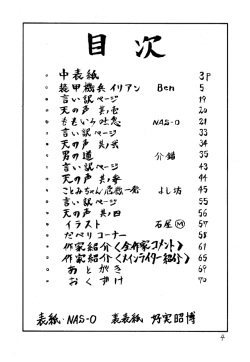 目次
◦ 中表紙 3P
◦ 装甲機兵イリアン Ben 5
◦ 言い訳ページ 19
◦ 天の声 其ノ壱 20
◦ ももいろ吐息 NAS-O 21
◦ 言い訳ページ 33
◦ 天の声 其ノ弐 34
◦ 男の道 介錯 35
◦ 言い訳ページ 43
◦ 天の声 其ノ参 44
◦ ことみちゃん危機一髪 よし坊 45
◦ 言い訳ページ 55
◦ 天の声 其ノ四 56
◦ イラスト 石屋Ⓜ 57
◦ だべりコーナー 58
◦ 作家紹介<全作家コメント> 61
◦ 作家紹介<メインライター紹介> 65
◦ あとがき 69
◦ おくづけ 70
表紙・NAS-O 裏表紙
4